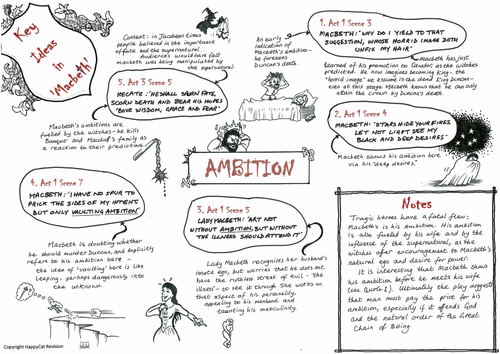 Key
Ideas
in
'Macbeth'
Context: in Jacobean times
people believed in the importance
of fate and the supernatural.
Audiences would have felt
Macbeth was being manipulated by
the supernatural.
5. Act 3 Scene 5
HECATE: 'HE SHALL SPURN FATE,
SCORN DEATH AND BEAR HIS HOPES
'BOVE WISDOM, GRACE AND FEAR'
Macbeth's ambitions are
fuelled by the witches - he kills
Banquo and Macduff's family as
a reaction to their predictions.
4. Act 1 Scene 7
MACBETH: 'I HAVE NO SPUR TO
PRICK THE SIDES OF MY INTENT,
BUT ONLY VAULTING AMBITION'
Macbeth is doubting whether
he should murder Duncan, and explicitly
refers to his ambition here -
the idea of 'vaulting' here is like
leaping - perhaps dangerously into
the unknown.
Copyright HappyCat Revision
An early
indication of
Macbeth's ambition -
he foresees
Duncan's death.
AMBITION
3. Act 1 Scene 5
LADY MACBETH: 'ART NOT
WITHOUT AMBITION, BUT WITHOUT
THE ILLNESS SHOULD ATTEND IT'
Lady Macbeth recognises her husband's
innate ego, but worries that he does not
have the ruthless streak of evil - 'the
illness' - to see it through. She works on
that aspect of his personality,
appealing to his manhood and
taunting his masculinity.
1. Act 1 Scene 3
MACBETH: 'WHY DO I YIELD TO THAT
SUGGESTION, WHOSE HORRID IMAGE DOTH
UNFIX MY HAIR'
Macbeth has just
learned of his promotion to Cawdor as the witches
predicted. He now imagines becoming King - the
'horrid image' we assume is the dead King Duncan -
even at this stage Macbeth knows that he can only
attain the crown by Duncan's death.
2. Act 1 Scene 4
MACBETH: 'STARS HIDE YOUR FIRES,
LET NOT LIGHT SEE MY
BLACK AND DEEP DESIRES'
Macbeth shows his ambition here
via his 'deep desires.'
Notes
Tragic heroes have a fatal flaw:
Macbeth's is his ambition. His ambition
is also fuelled by his wife and by the
influence of the supernatural, as the
witches offer encouragement to Macbeth's
natural ego and desire for power.
It is interesting that Macbeth shows
his ambition before he meets his wife
(see Quote 1). Ultimately the play suggests
that man must pay the price for his
ambition, especially if it offends God
and the natural order of the Great
Chain of Being.